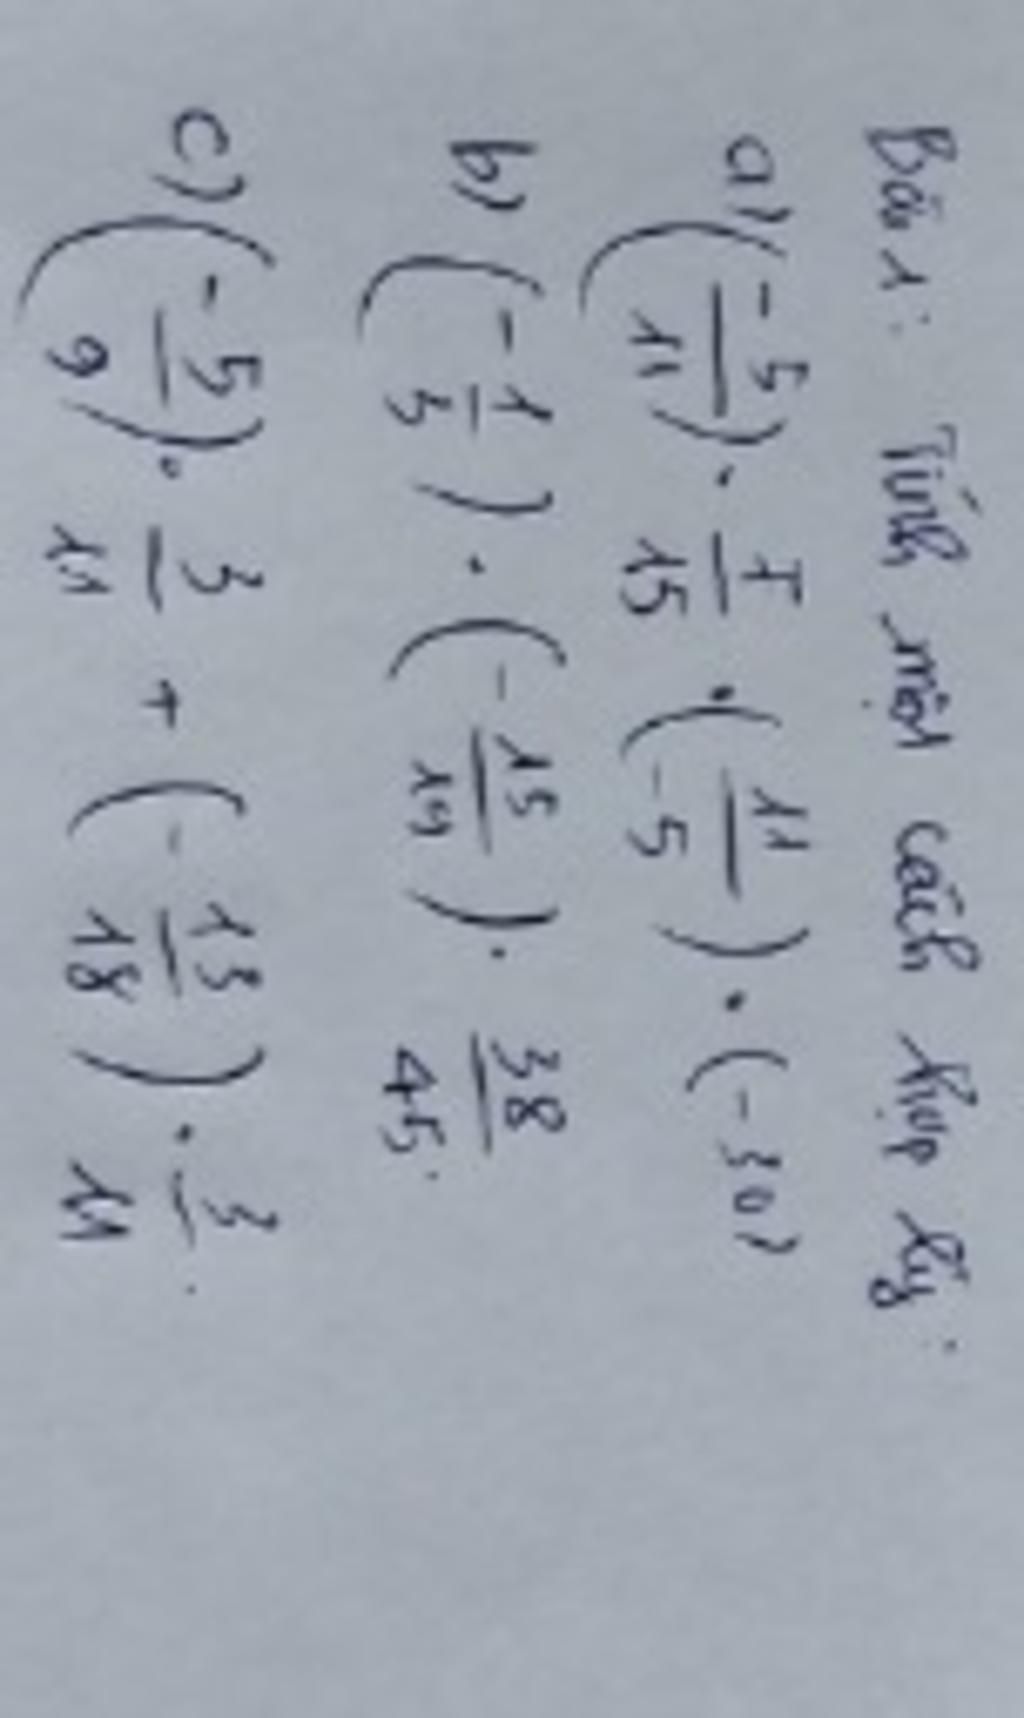 Bài 1: Tính một cách hợp lý:
a) (-5/11) . 7/15 . (11/-5) . (-30)
b) (-1/3) . (-15/19) . 38/45.
c) (-5/9) . 3/11 + (-13/18) . 3/11.